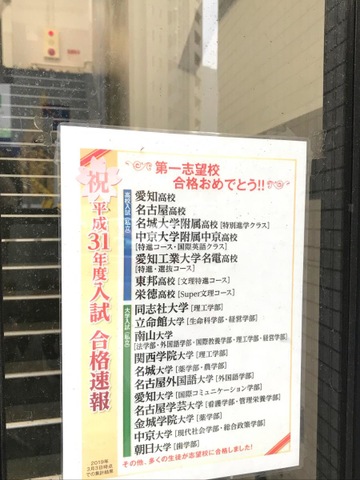 祝 平成31年度入試 合格速報
2019年
3月5日時点
での集計結果
第一志望校
合格おめでとう!!
高校入試【私立】
愛知高校
名古屋高校
名城大学附属高校 [特別進学クラス]
中京大学附属中京高校
[特進コース・国際英語クラス]
愛知工業大学名電高校
[特進・選抜コース]
東邦高校 [文理特進コース]
栄徳高校 [Super文理コース]
大学入試【私立】
同志社大学 [理工学部]
立命館大学 [生命科学部・経営学部]
南山大学
[法学部・外国語学部・国際教養学部・理工学部・経営学部]
関西学院大学 [理工学部]
名城大学 [薬学部・農学部]
名古屋外国語大学 [外国語学部]
愛知大学 [国際コミュニケーション学部]
名古屋学芸大学 [看護学部・管理栄養学部]
金城学院大学 [薬学部]
中京大学 [現代社会学部・総合政策学部]
朝日大学 [歯学部]
その他、多くの生徒が志望校に合格しました!